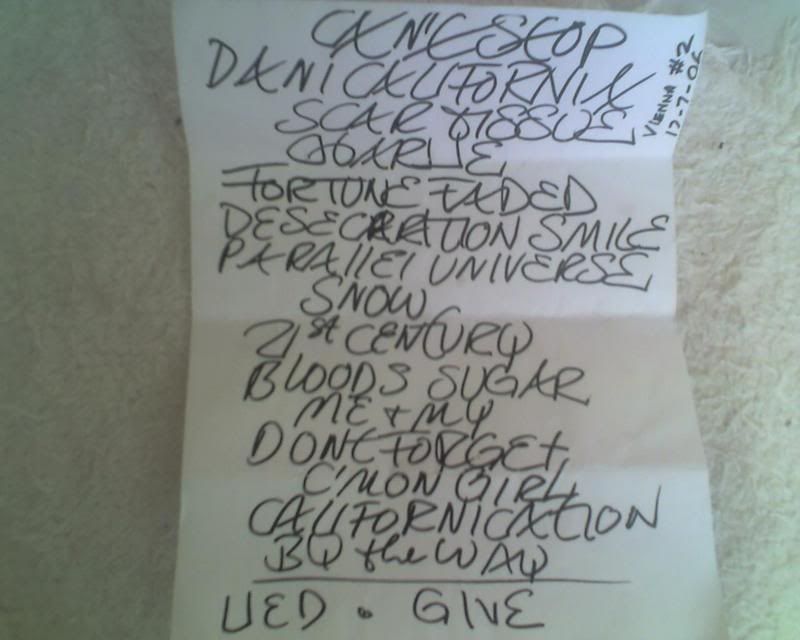 CAN'T STOP
DANI CALIFORNIA
SCAR TISSUE
CHARLIE
FORTUNE FADED
DESECRATION SMILE
PARALLEL UNIVERSE
SNOW
21st CENTURY
BLOODS SUGAR
ME + MY
DON'T FORGET
C'MON GIRL
CALIFORNICATION
BY the WAY
UED . GIVE
VIENNA #2
12-7-06